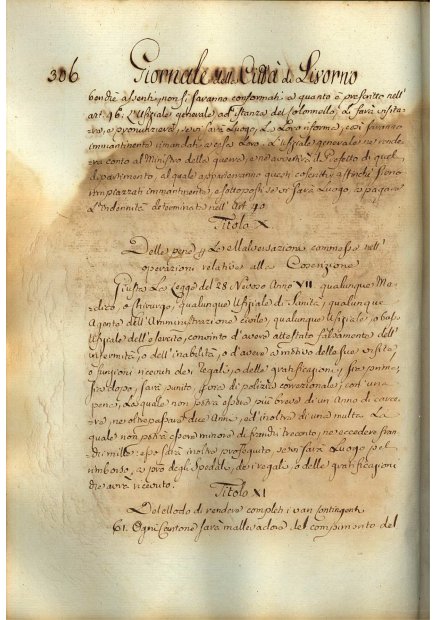 306 Giornale della Città di Livorno
bendiè assenti, non si saranno conformati a quanto è prescritto nell'
art. 46. L'Uffiziale generale ad istanza del Colonnello, li farà visita-
re, e pronunzierà, se vi sarà luogo, la Loro riforma, essi saranno
immantinente rimandati a casa Loro. L'Uffiziale generale ne rende-
rà conto al Ministro della guerra, e ne avvertirà il Prefetto di quel
dipartimento, al quale apparterranno questi coscritti, affinchè siano
rimpiazzati immantinente, e sottoposti se vi sarà Luogo, a pagare
L'Indennità determinata nell'Art. 40.
Titolo X
Delle pene p Le Malversazioni commesse nell'
operazioni relative alla Coscrizione
Giusta La Legge del 28 Nivoso Anno VII qualunque Me-
dico, o chirurgo, qualunque Uffiziale di Sanità, qualunque
Agente dell'Amministrazione civile, qualunque Uffiziale, o bass'
Uffiziale dell'esercito, convinto d'avere attestato falsamente dell'
infermità, o dell'inabilità, o d'avere a motivo delle sue visite,
o funzioni ricevuti dei regali, o delle gratificazioni, sia prima,
sia dopo, sarà punito, p via di polizia correzionale, con una
pena, La quale non potrà essere più breve di un Anno di carce-
re, ne oltrepassare due Anni, ed inoltre di una multa La
quale non potrà essere minore di franchi trecento, ne eccedere fran-
chi mille: esso sarà inoltre proseguito, se vi sarà Luogo pel
rimborso, a prò degli Spedali, dei regali, o delle gratificazioni
che avrà ricevuto.
Titolo XI
Del Modo di rendere completi i van Contingenti
61. Ogni Cantone sarà mallevadore del compimento del